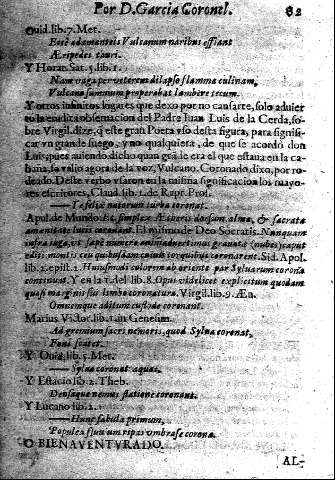 Por D. Garcia Coronel. 82
Ouid. lib. 7. Met.
Ecce adamanteis Vulcanum naribus efflant
Æripedes tauri.
Y Horat. Sat. 5. lib. 1.
Nam vaga per veterem dilapso flamma culinam,
Vulcano summum properabat lambere tectum.
Y otros infinitos lugares que dexo por no cansarte, solo aduier
to la erudita obseruacion del Padre Juan Luis de la Cerda, so-
bre Virgil. dize, q̃ este gran Poeta vso desta figura, para signifi-
car vn grande fuego, y no qualquiera, de que se acordò don
Luis, pues auiendo dicho quan grãde era el que estaua en la ca-
baña, se valio agora de la voz, Vulcano. Coronado, dixo, por ro-
deado. Deste verbo vsaron en la misma significacion los mayo-
res escritores, Claud. lib. 1. de Rapt. Pros.
turba coronat.
Apul. de Mundo. Et, simplex Ætheris dorsum, alme, & sacratæ
amœnitate lucis coronant. El mismo de Deo Socratis. Nunquam
infra iuga, vt sæpè numero animaduertimus grauatæ nubes caput
editi montis ceu quibusdam curuis torquibus coronarent. Sid. Apol.
lib. 2. epist. 2. Huiusmodi colorem ab oriente par Syluarum corona
continuit. Y en la 11. del lib. 8. Opus videlicet explicitum quodam
quasi marginis sui limbo coronatura. Virgil. lib. 9. Æn.
Omnemque aditum custode coronant.
Marius Victor. lib. 1. in Genesim.
Ad gremium sacri nemoris, quod Sylua coronat,
Fons scatet.
Y Ouid. lib. 5. Met.
—— Sylua coronat aquas.
Y Estacio lib. 2. Theb.
Densaque nemus statione coronant.
Y Lucano lib. 2.
—— Hunc fabula primum,
Populea fluuium ripas vmbrasse corona.
O BIENAVENTVRADO.
AL-